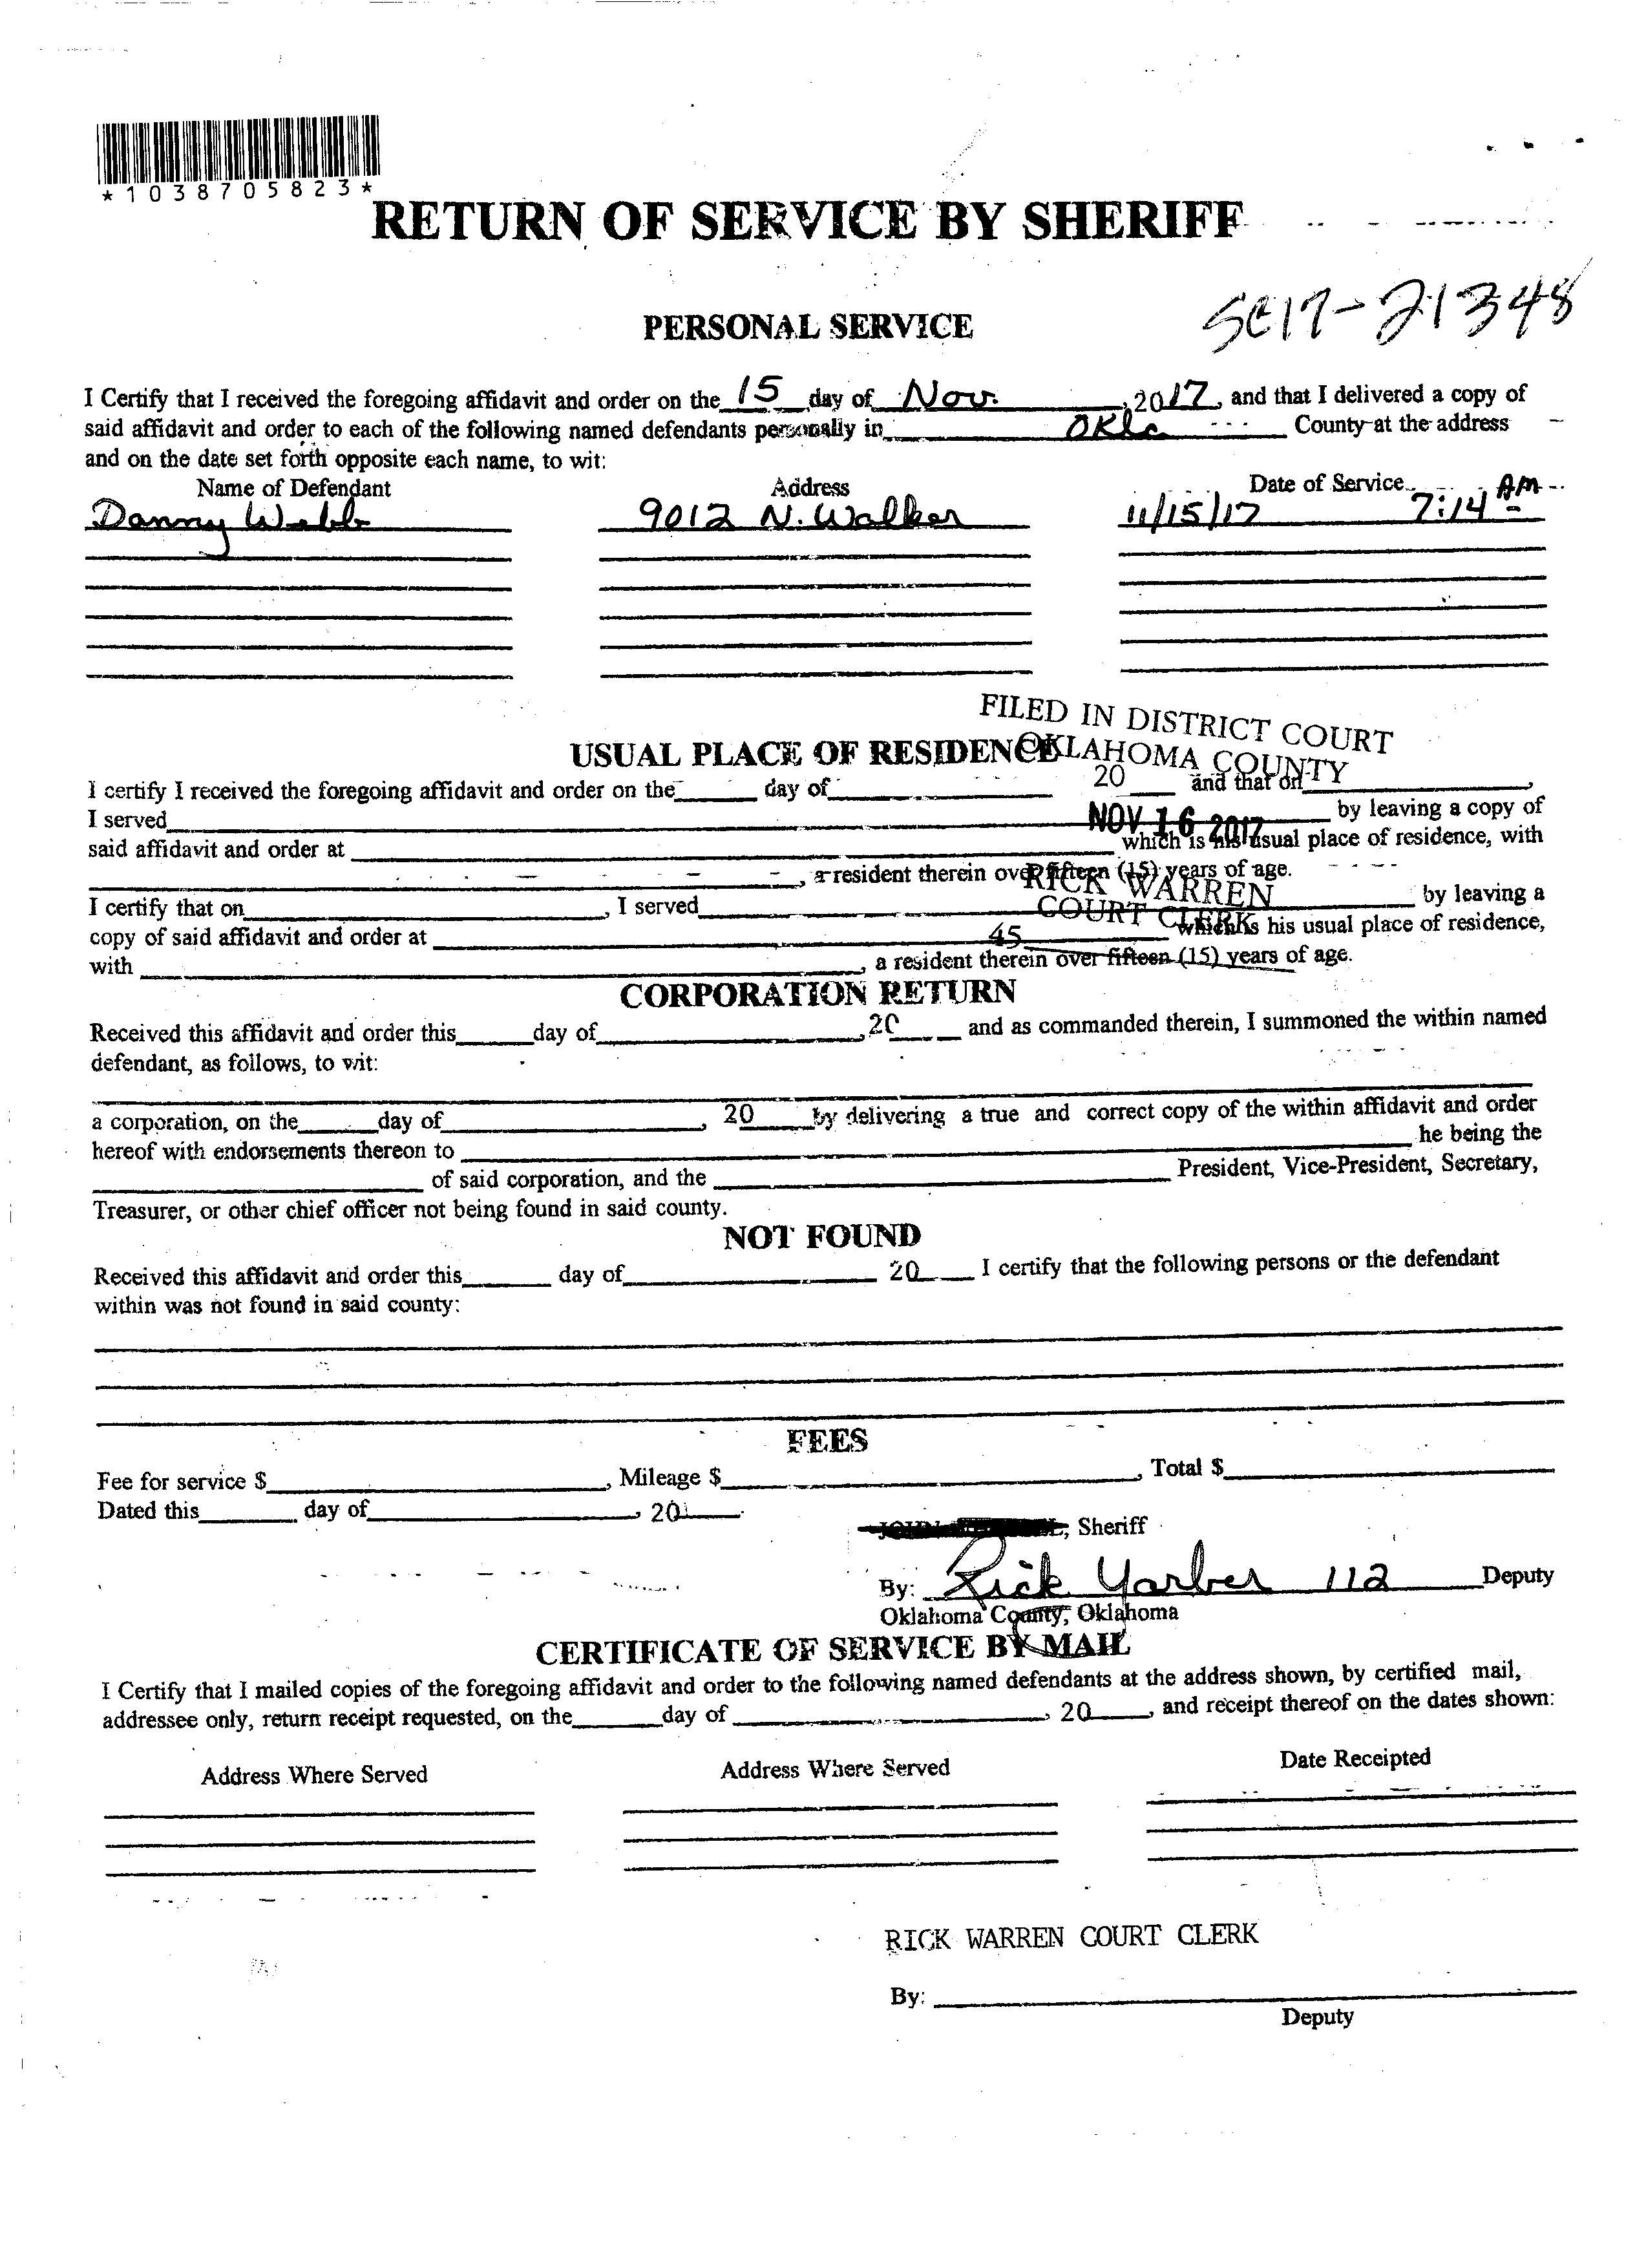 *1038705823*
RETURN OF SERVICE BY SHERIFF
PERSONAL SERVICE
SC17-21348
I Certify that I received the foregoing affidavit and order on the 15 day of Nov. , 2017, and that I delivered a copy of
said affidavit and order to each of the following named defendants personally in Okla County at the address
and on the date set forth opposite each name, to wit:
Name of Defendant Address Date of Service
Danny Webb 9012 N. Walker 11/15/17 7:14 AM
FILED IN DISTRICT COURT
OKLAHOMA COUNTY
USUAL PLACE OF RESIDENCE
I certify I received the foregoing affidavit and order on the ____ day of ____ 20 ____ and that on ____,
NOV 16 2017
I served ____ by leaving a copy of
said affidavit and order at ____ which is his usual place of residence, with
____, a resident therein over fifteen (15) years of age.
RICK WARREN
COURT CLERK
I certify that on ____, I served ____ by leaving a
copy of said affidavit and order at ____ which is his usual place of residence,
45
with ____, a resident therein over fifteen (15) years of age.
CORPORATION RETURN
Received this affidavit and order this ____ day of ____, 20 ____ and as commanded therein, I summoned the within named
defendant, as follows, to wit:
a corporation, on the ____ day of ____, 20 ____ by delivering a true and correct copy of the within affidavit and order
hereof with endorsements thereon to ____ he being the
____ of said corporation, and the ____ President, Vice-President, Secretary,
Treasurer, or other chief officer not being found in said county.
NOT FOUND
Received this affidavit and order this ____ day of ____ 20 ____ I certify that the following persons or the defendant
within was not found in said county:
FEES
Fee for service $ ____, Mileage $ ____, Total $ ____
Dated this ____ day of ____, 20 ____
, Sheriff
By: Rick Yarber 112 Deputy
Oklahoma County, Oklahoma
CERTIFICATE OF SERVICE BY MAIL
I Certify that I mailed copies of the foregoing affidavit and order to the following named defendants at the address shown, by certified mail,
addressee only, return receipt requested, on the ____ day of ____, 20 ____, and receipt thereof on the dates shown:
Address Where Served Address Where Served Date Receipted
RICK WARREN COURT CLERK
By: ____
Deputy